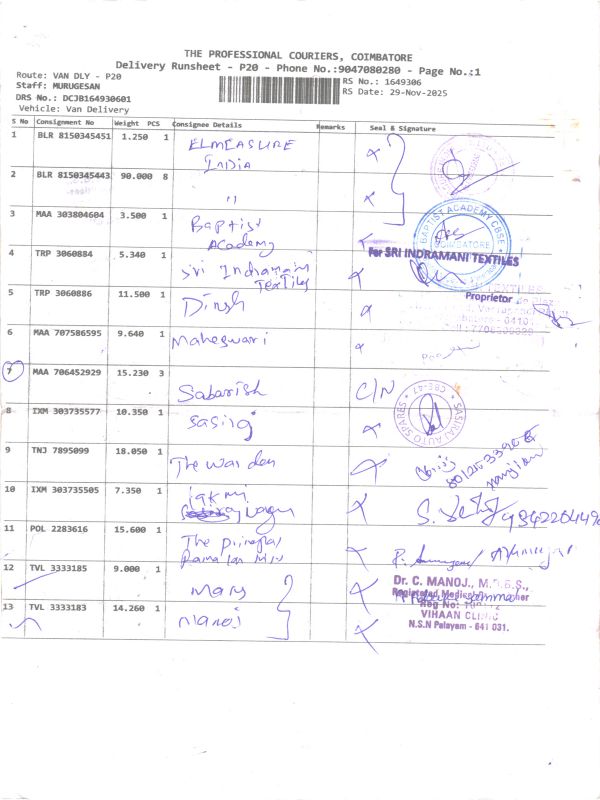 THE PROFESSIONAL COURIERS, COIMBATORE
Delivery Runsheet - P20 - Phone No.:9047080280 - Page No.:1
Route: VAN DLY - P20
RS No.: 1649306
Staff: MURUGESAN
RS Date: 29-Nov-2025
DRS No.: DCJB164930601
Vehicle: Van Delivery
S No Consignment No Weight PCS Consignee Details Remarks Seal & Signature
1 BLR 8150345451 1.250 1 ELMEASURE
India
2 BLR 8150345443 90.000 8 "
3 MAA 303804604 3.500 1 Baptist
Academy
BAPTIST ACADEMY CBSE
COIMBATORE
4 TRP 3060884 5.340 1 Sri Indramani
Textiles
For SRI INDRAMANI TEXTILES
Proprietor
5 TRP 3060886 11.500 1 Dinesh
6 MAA 707586595 9.640 1 Maheswari
7 MAA 706452929 15.230 3 Sabarish C/N
8 IXM 303735577 10.350 1 Sasiraj
SASIRAJ AUTO SPARES
CBE-47
9 TNJ 7895099 18.050 1 The warden
10 IXM 303735505 7.350 1
11 POL 2283616 15.600 1 The principal
12 TVL 3333185 9.000 1 Mary
Dr. C. MANOJ., M.B.B.S.,
Registered Medical
Reg No:
13 TVL 3333183 14.260 1 Manoj
VIHAAN CLINIC
N.S.N Palayam - 641 031.